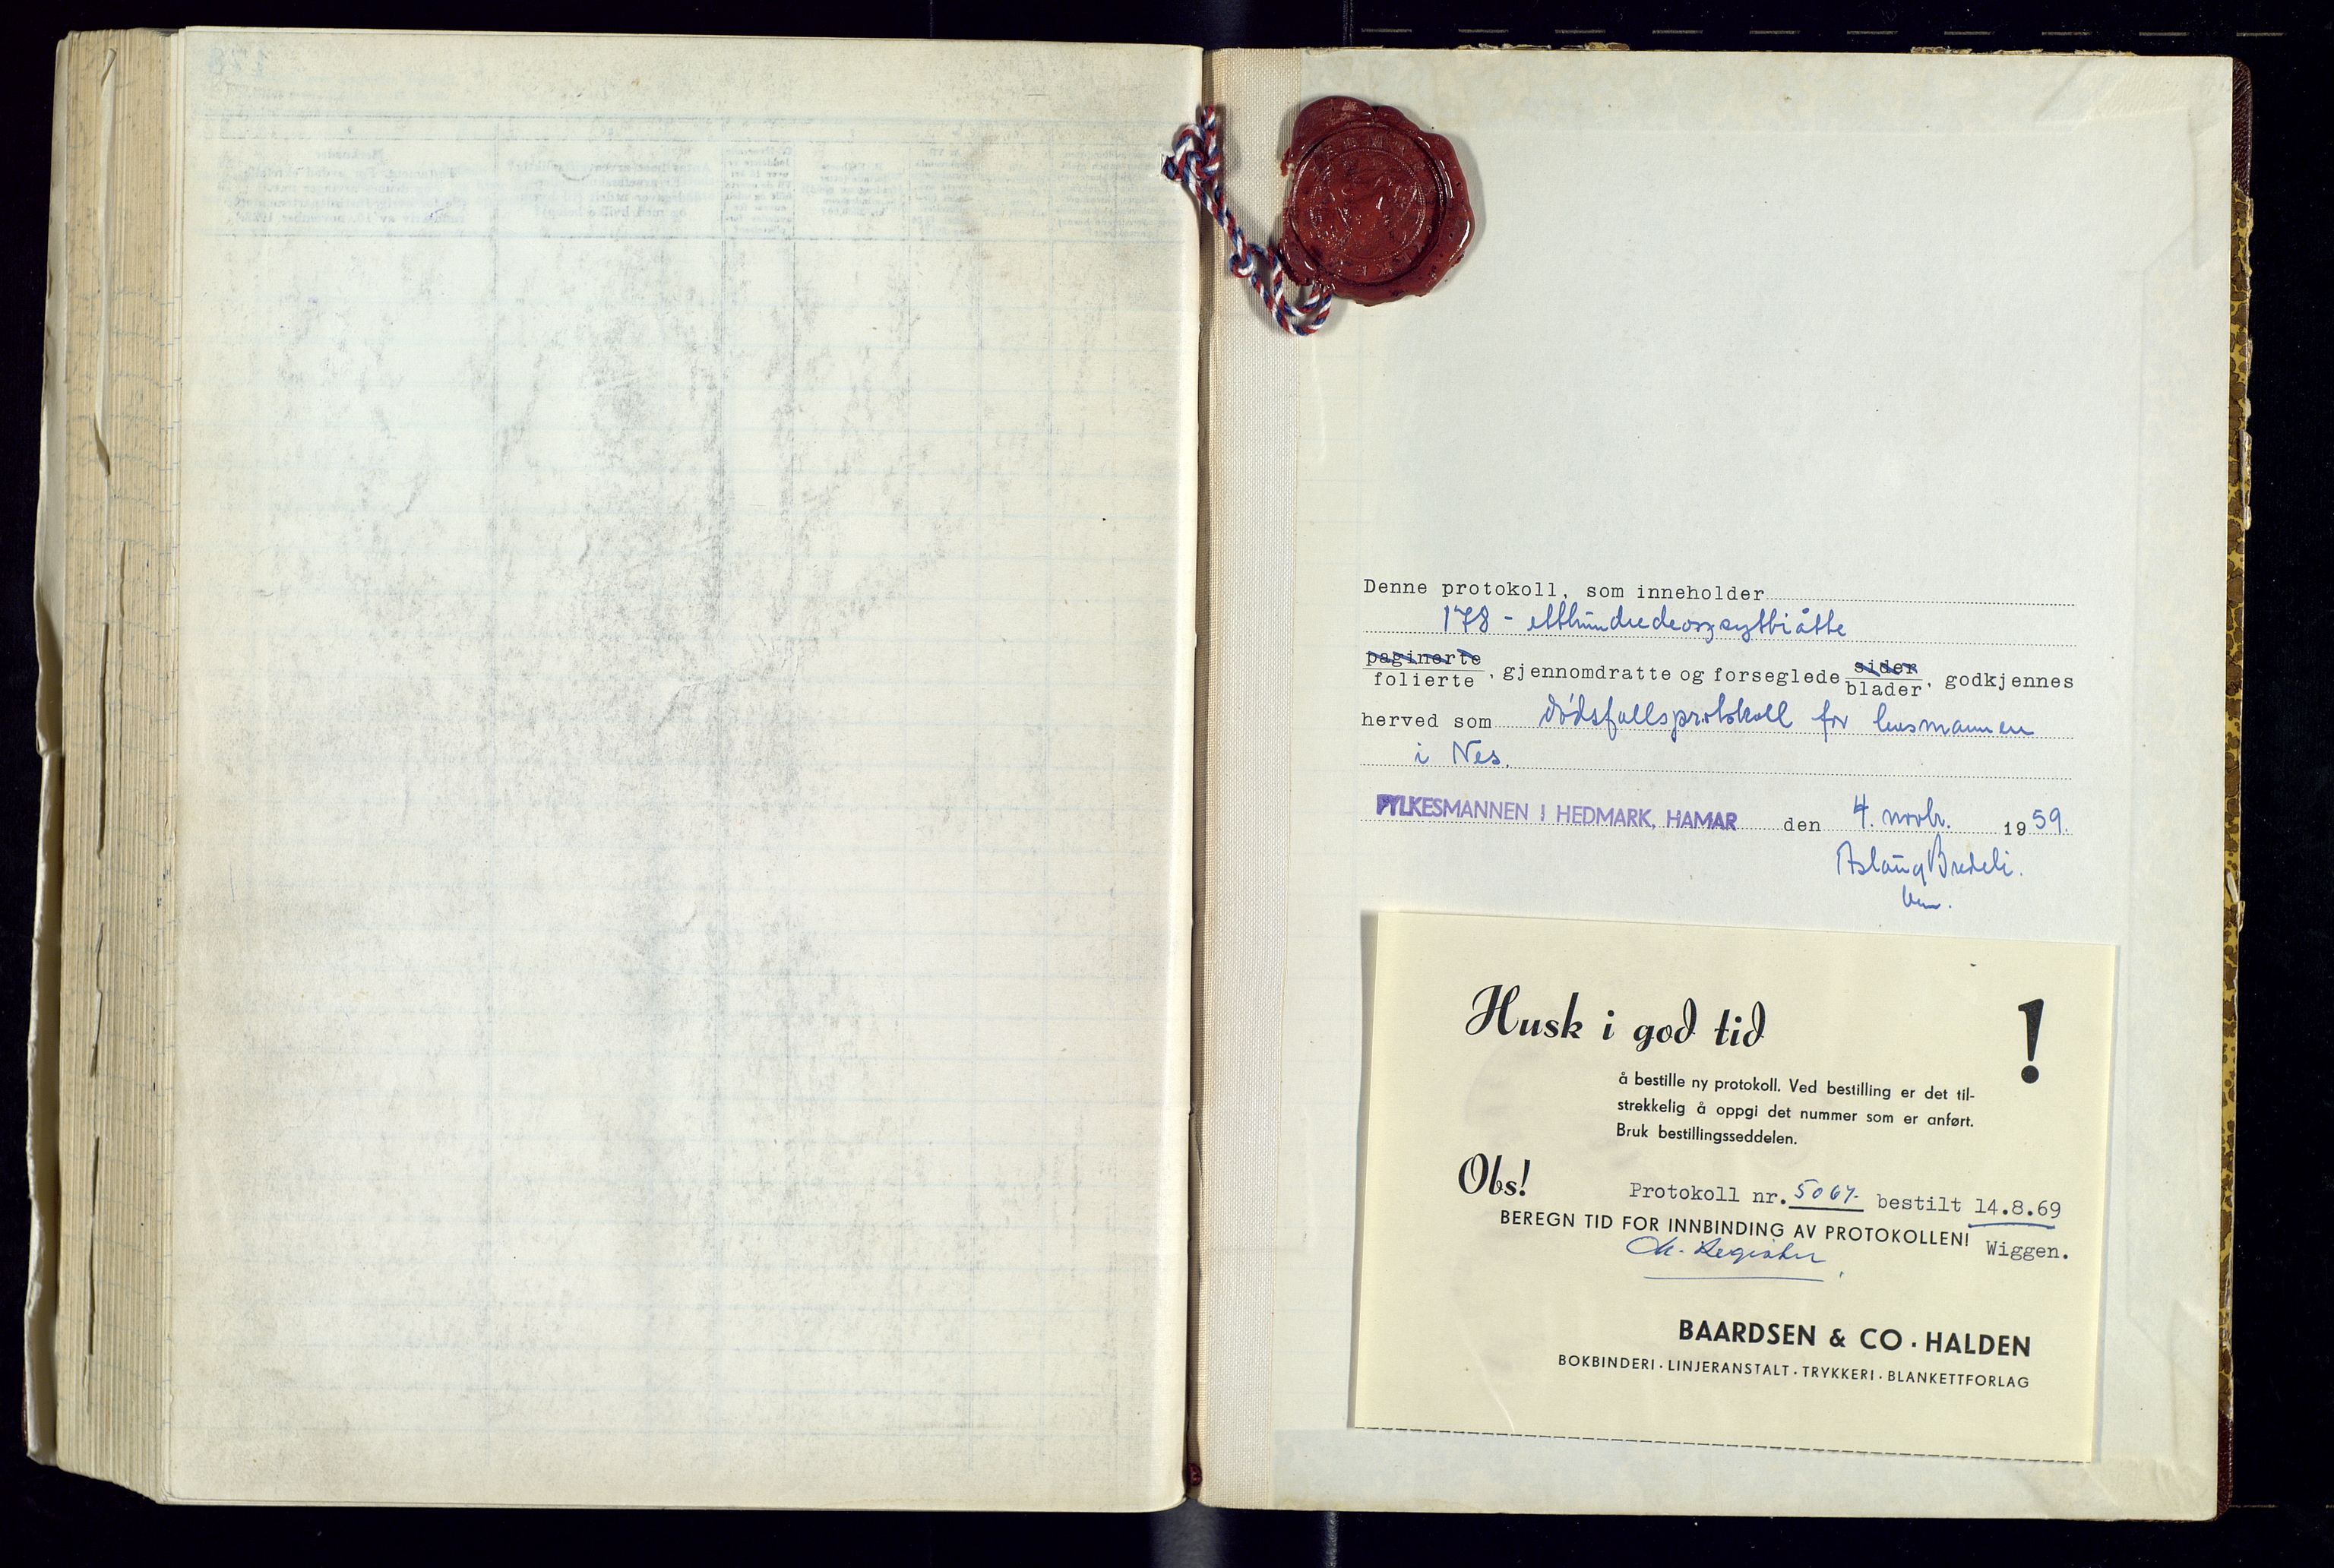 Denne protokoll, som inneholder
178 - etthundredeogsyttiåtte
paginerte
folierte, gjennomdratte og forseglede sider
blader, godkjennes
herved som dødsfallsprotokoll for lensmannen
i Nes.
FYLKESMANNEN I HEDMARK, HAMAR den 4. novbr. 1959.
Aslaug Bredeli.
Husk i god tid !
å bestille ny protokoll. Ved bestilling er det til-
strekkelig å oppgi det nummer som er anført.
Bruk bestillingsseddelen.
Obs! Protokoll nr. 5067. bestilt 14.8.69
BEREGN TID FOR INNBINDING AV PROTOKOLLEN! Wiggen.
Register
BAARDSEN & CO · HALDEN
BOKBINDERI · LINJERANSTALT · TRYKKERI · BLANKETTFORLAG